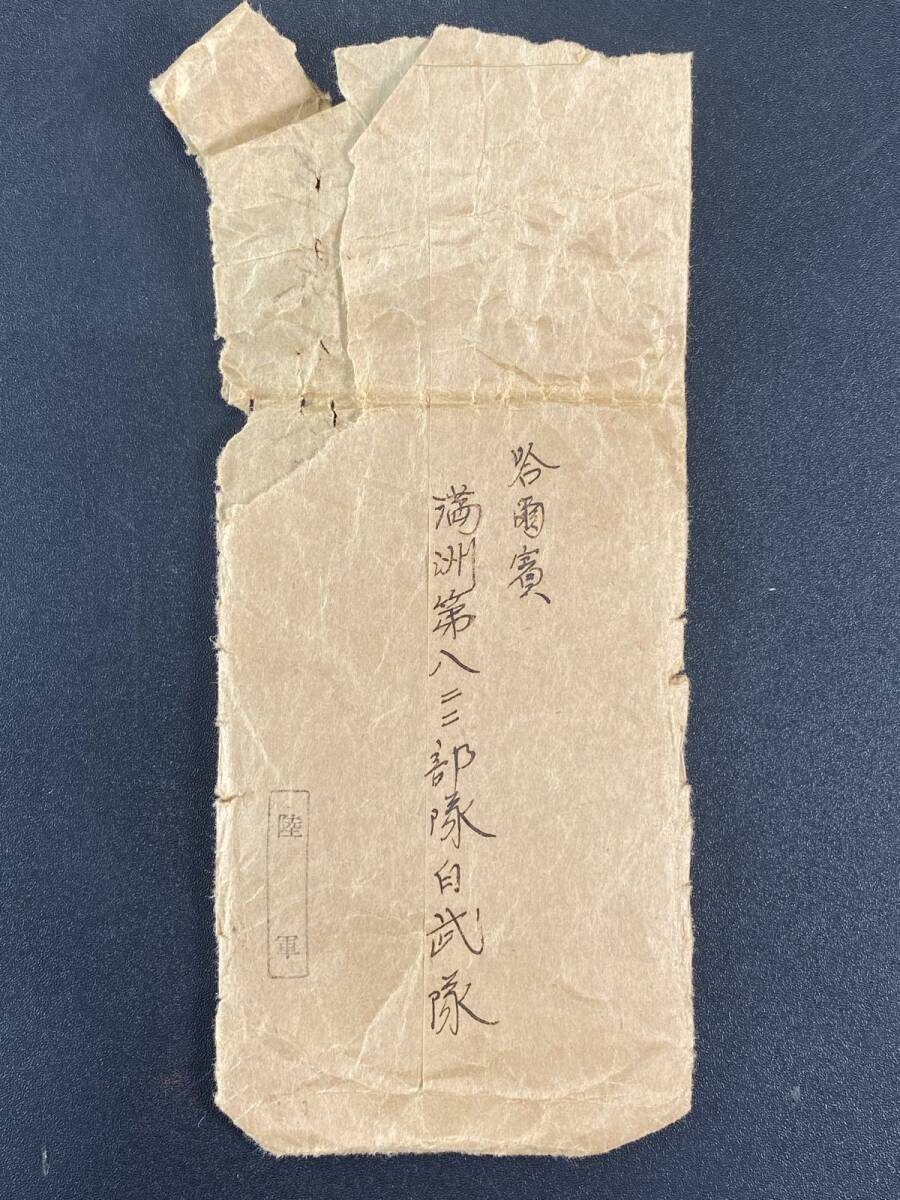 哈爾賓
満洲第八二二部隊白武隊
陸軍